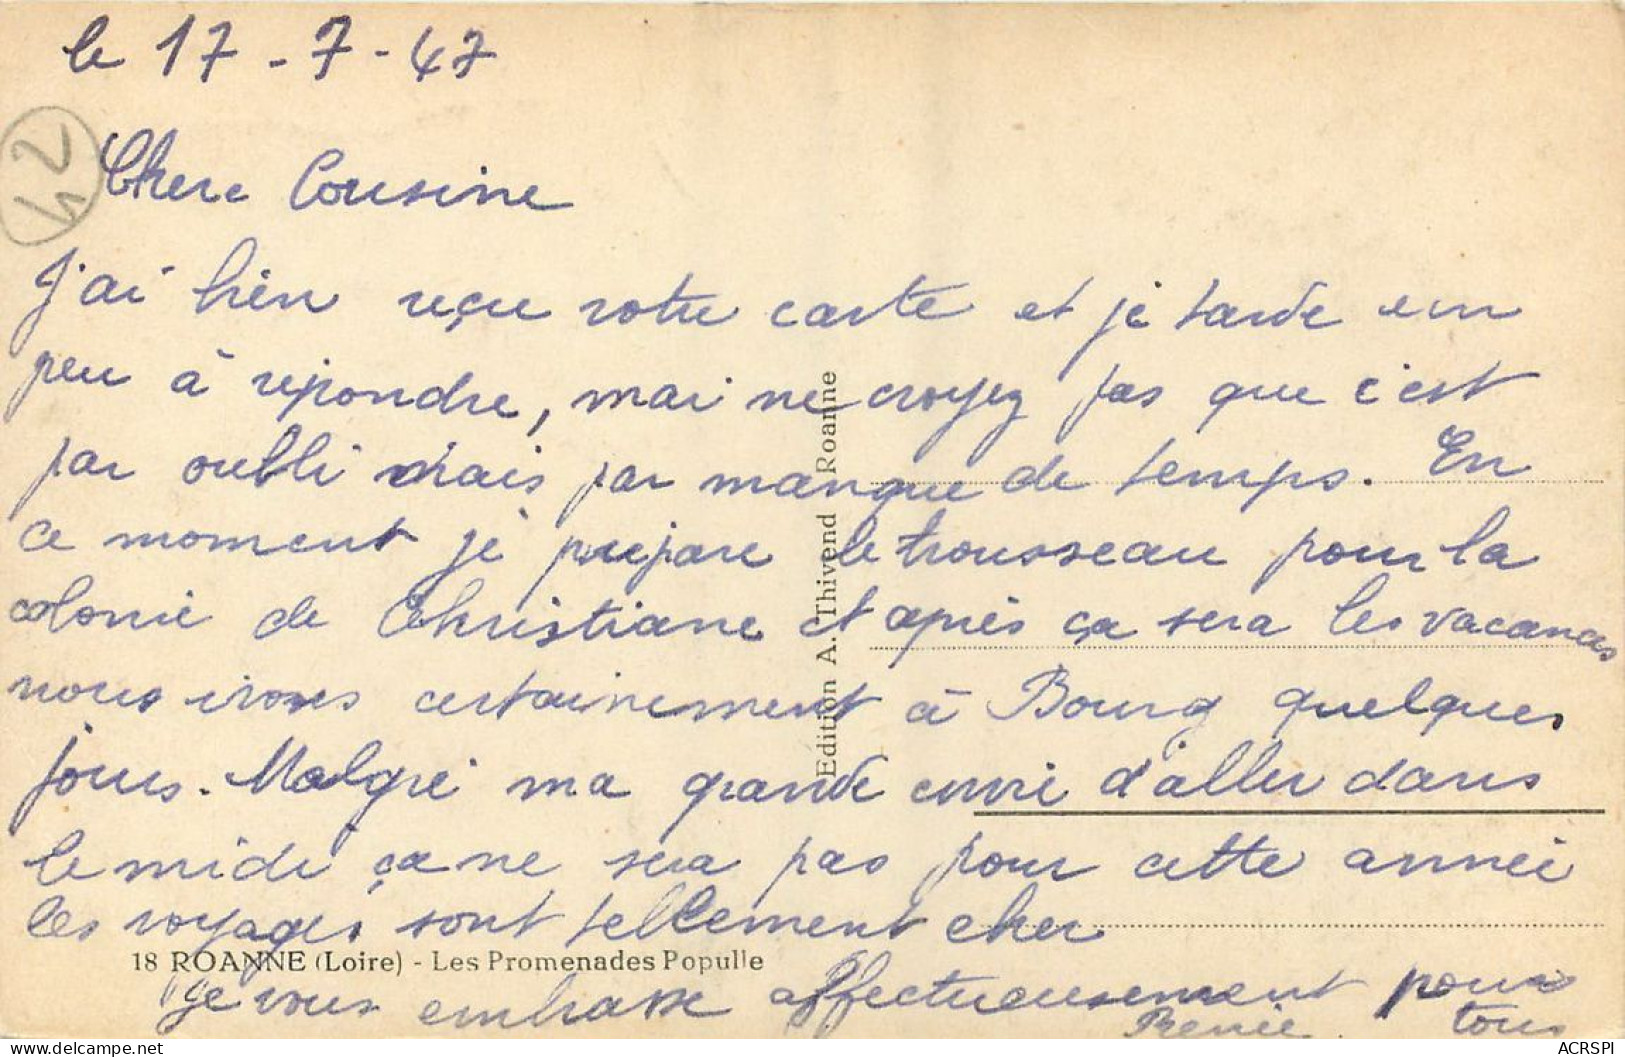 le 17-7-47
42
Chere Cousine
J'ai bien reçue votre carte et je tarde un
peu à repondre, mai ne croyez pas que c'est
par oubli mais par manque de temps. En
ce moment je prepare le trousseau pour la
colonie de Christiane et après ça sera les vacances
nous irons certainement à Bourg quelques
jours. Malgré ma grande envie d'aller dans
le midi ça ne sera pas pour cette année
les voyages sont tellement cher
Je vous embrasse affectueusement pour
tous
Renée
18 ROANNE (Loire) - Les Promenades Populle
Edition A. Thivend Roanne
delcampe.net
ACRSPI